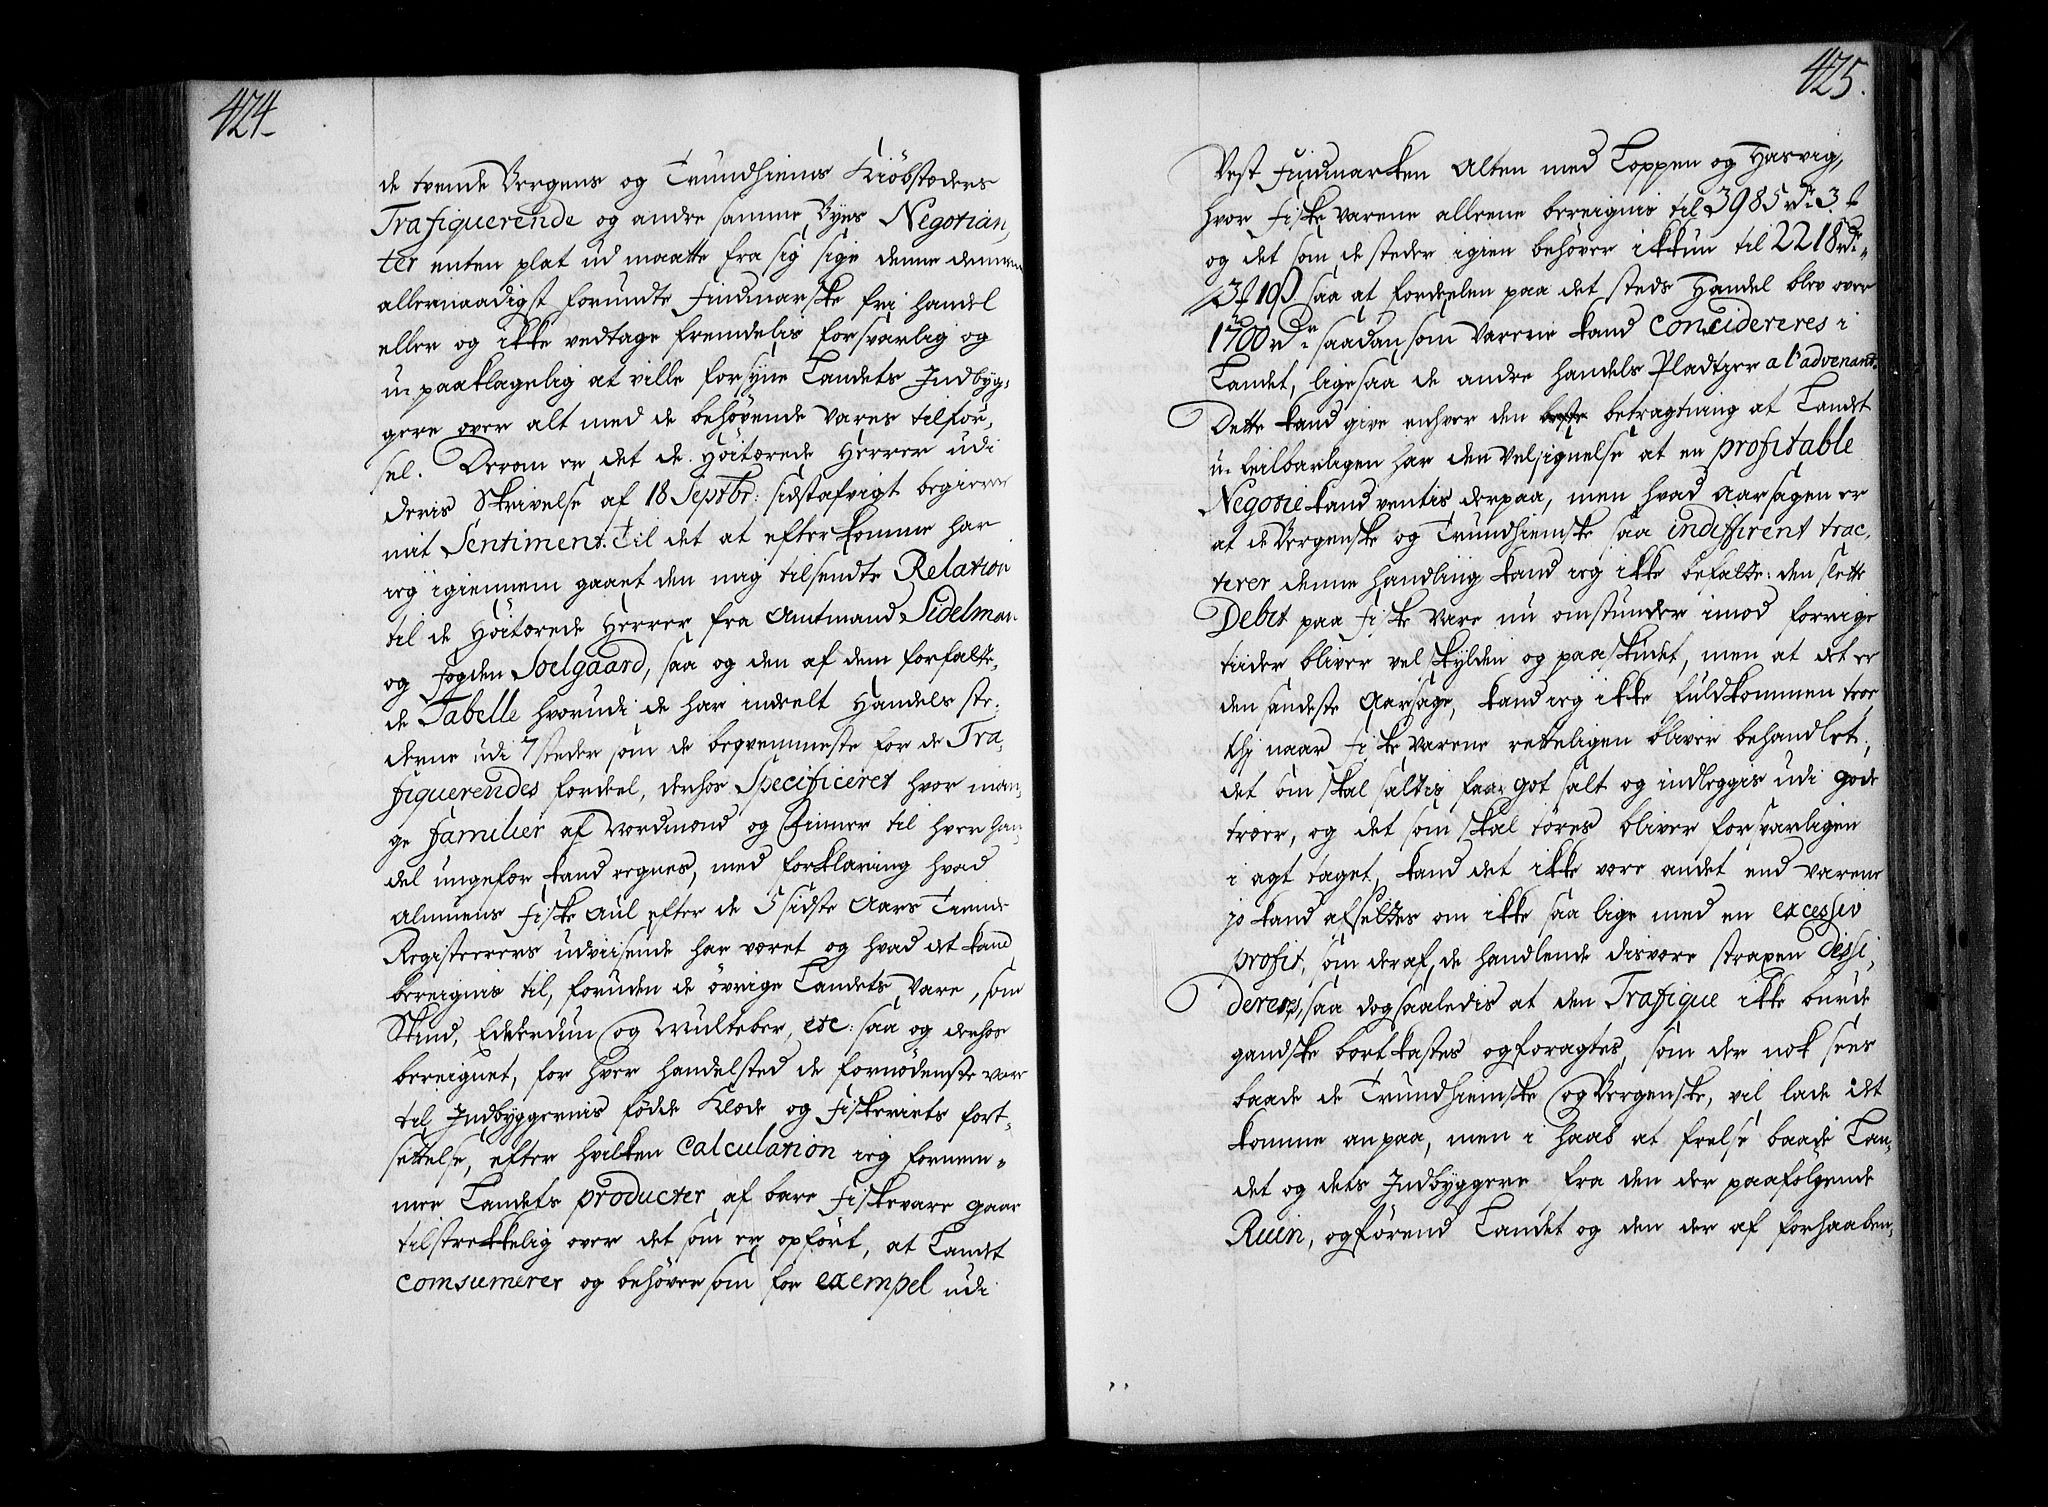 424
de tvende Bergens og Trundhiems Kiöbstæders
Trafiquerende og andre samme Byes Negotian,
ter enten plat ud maatte fra sig sige denne dennem
allernaadigst forundte Findmarske fri Handel
eller og ikke vedtage fremdelis forsvarlig og
upaaklagelig at ville forsyne Landets Indbyg,
gere over alt med de behövende Vares tilför,
sel. Derom er det de Höitærede Herrer udi
deris Skrivelse af 18 Septbr: sidstafvigt begierer
mit Sentiment. Til det at efterkomme har
ieg igiennem gaaet den mig tilsendte Relation
til de Höitærede Herrer fra Amtmand Sidelman
og fogden Soelgaard, saa og den af dem forfatte,
de Tabelle hvorudi de har indeelt Handels ste,
derne udi 7 steder som de beqvemmeste for de Tra,
fiquerendes fordeel, derhos Specificeret hvor man,
ge familier af Nordmænd og Finner til hver han,
del ungefær kand regnes, med forklaring hvad
Almuens fiske Aul efter de 5 sidste Aars Tiende
Registerers udviisende har været og hvad det kand
bereignis til, foruden de övrige Landets Vare, som
Skind, Edderdun og Multeber, etc: saa og derhos
bereignet, for hver handelsted de fornödenste vare
til Indbyggernis föde Klæde og fiskeriets fort,
settelse, efter hvilken Calculation ieg fornem,
mer Landets producter af bare fiskevare gaar
tilstrekkelig over det som er opfört, at Landet
comsumerer og behöver som for exempel udi
425.
Vest Findmarken Alten med Loppen og Hasvig,
hvor fiske Varene alleene bereignis til 3985 rdr. 3 ƒ
og det som de steder igien behöver ikkun til 2218 rdr.
3 ƒ 19 ß. saa at fordeelen paa det steds Handel blev over
1700 rdr. saadan som Varene kand concidereres i
Landet, ligesaa de andre handels Pladtzer a l'advenant.
Dette kand give enhver den beste betragtning at Landet
u-feilbarligen har den Velsignelse at en profitable
Negotie kand ventis derpaa, men hvad Aarsagen er
at de Bergenske og Trundhiemske saa indiffirent trac,
terer denne handling kand ieg ikke befatte: den slette
Debit paa fiske Vare nu omstunder imod forrige
tiider bliver vel skylden og paaskudet, men at det er
den sandeste Aarsage, kand ieg ikke fuldkommen troe
thj naar fiske Varene retteligen bliver behandlet,
det som skal saltis faar got salt og indleggis udi gode
træer, og det som skal töres bliver forsvarligen
i agt taget, kand det ikke være andet end Varene
jo kand afsettes om ikke saa lige med en excessiv
profit, om deraf de handlende disvære straxen dessi,
deres, saa dog saaledis at den Trafique ikke burde
gandske bortkastes og foragtes, som der nok sees
baade de Trundhiemske og Bergenske, vil lade det
komme anpaa, men i Haab at frelse baade Lan,
det og dets Indbyggere fra den der paafolgende
Ruin, og förend Landet og den der af forhaaben,